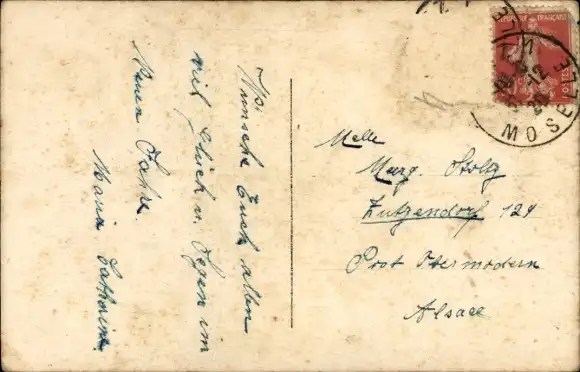 Wünsche Euch allen
viel Glück u. Segen im
Neuen Jahre
Maria Catharina
Melle
Marg. Stoltz
Zutzendorf 124
Post Obermodern
Alsace
REPUBLIQUE FRANÇAISE
POSTES
12
MOSELLE